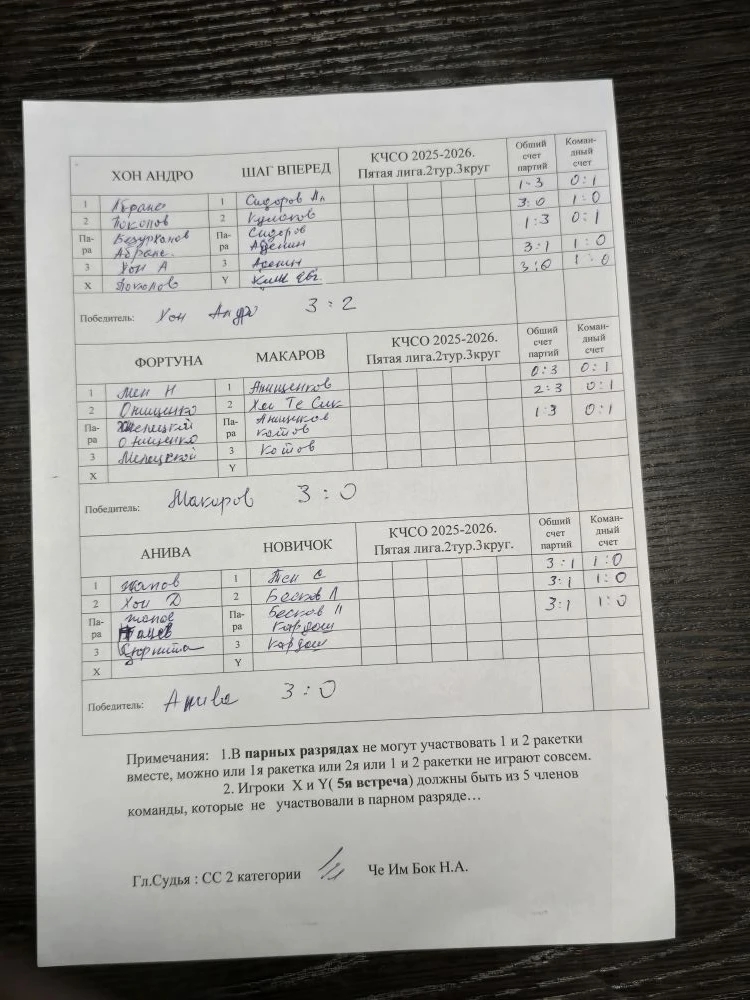 ХОН АНДРО ШАГ ВПЕРЕД КЧСО 2025-2026. Общий Коман-
Пятая лига.2тур.3круг счет дный
партий счет
1 1 Сидоров 1-3 0:1
2 2 Кулаков 3:0 1:0
Па- Па- Сидоров 1:3 0:1
ра ра
3 Хон А 3 3:1 1:0
X Y 3:0 1:0
Победитель: Хон Андро 3:2
ФОРТУНА МАКАРОВ КЧСО 2025-2026. Общий Коман-
Пятая лига.2тур.3круг счет дный
партий счет
1 Мен Н 1 Анищенков 0:3 0:1
2 Онищенко 2 Хен Те Сик 2:3 0:1
Па- Па- Анищенков 1:3 0:1
ра Онищенко ра Котов
3 3 Котов
X Y
Победитель: Макаров 3:0
АНИВА НОВИЧОК КЧСО 2025-2026. Общий Коман-
Пятая лига.2тур.3круг. счет дный
партий счет
1 1 Тен С 3:1 1:0
2 Хон Д 2 Бесков Л 3:1 1:0
Па- Па- Бесков Л 3:1 1:0
ра ра Кардаш
3 3 Кардаш
X Y
Победитель: Анива 3:0
Примечания: 1.В парных разрядах не могут участвовать 1 и 2 ракетки
вместе, можно или 1я ракетка или 2я или 1 и 2 ракетки не играют совсем.
2. Игроки X и Y( 5я встреча) должны быть из 5 членов
команды, которые не участвовали в парном разряде…
Гл.Судья : СС 2 категории Че Им Бок Н.А.